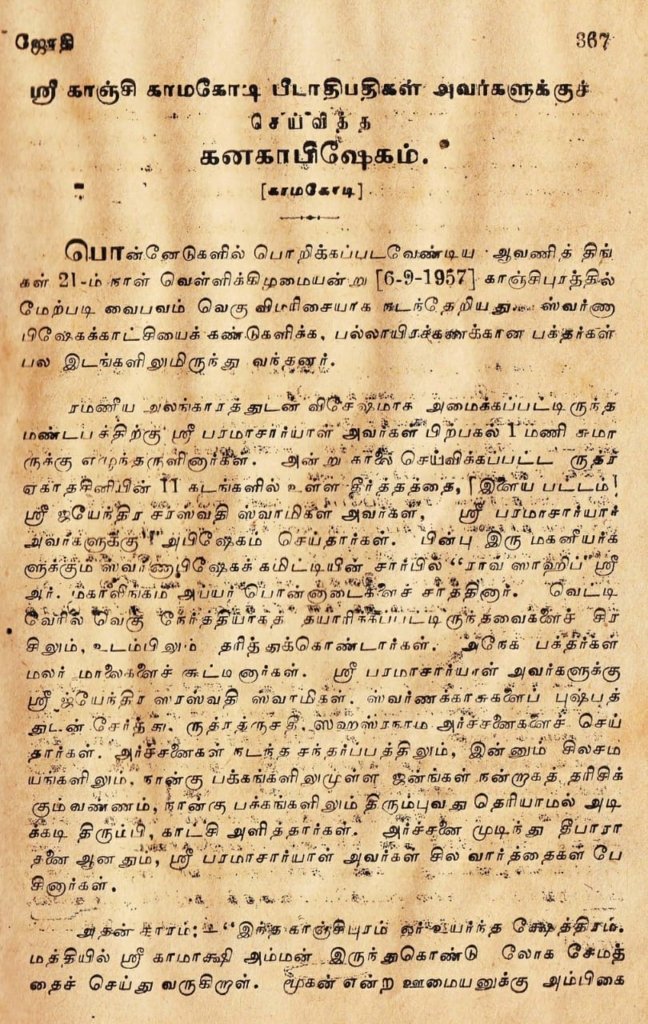 ஜோதி 367
ஸ்ரீ காஞ்சி காமகோடி பீடாதிபதிகள் அவர்களுக்குச்
செய்வித்த
கனகாபிஷேகம்.
[காமகோடி]
பொன்னேடுகளில் பொறிக்கப்படவேண்டிய ஆவணித் திங்
கள் 21-ம் நாள் வெள்ளிக்கிழமையன்று [6-9-1957] காஞ்சிபுரத்தில்
மேற்படி வைபவம் வெகு விமரிசையாக நடந்தேறியது. ஸ்வர்ணு
பிஷேகக்காட்சியைக் கண்டுகளிக்க, பல்லாயிரக்கணக்கான பக்தர்கள்
பல இடங்களிலுமிருந்து வந்தனர்.
ரமணீய அலங்காரத்துடன் விசேஷமாக அமைக்கப்பட்டிருந்த
மண்டபத்திற்கு ஸ்ரீ பரமாசார்யாள் அவர்கள் பிற்பகல் 1 மணி சுமா
ருக்கு எழுந்தருளினார்கள். அன்று காலை செய்விக்கப்பட்ட ருத்ர
ஏகாதசினியின் 11 கடங்களில் உள்ள தீர்த்தத்தை, [இளைய பட்டம்]
ஸ்ரீ ஜயேந்திர சரஸ்வதி ஸ்வாமிகள் அவர்கள், ஸ்ரீ பரமாசார்யார்
அவர்களுக்கு அபிஷேகம் செய்தார்கள். பின்பு இரு மகனீயர்க
ளுக்கும் ஸ்வர்ணபிஷேகக்கமிட்டியின் சார்பில் "ராவ் ஸாஹிப்" ஸ்ரீ
ஆர். மகாலிங்கம் அய்யர் பொன்னாடைகளைச் சாத்தினார். வெட்டி
வேரில் வெகு நேர்த்தியாகத் தயாரிக்கப்பட்டிருந்தவைகளைச் சிர
சிலும், உடம்பிலும் தரித்துக்கொண்டார்கள். அநேக பக்தர்கள்
மலர் மாலைகளைச் சூட்டினார்கள். ஸ்ரீ பரமாசார்யாள் அவர்களுக்கு
ஸ்ரீ ஜயேந்திர ஸரஸ்வதி ஸ்வாமிகள். ஸ்வர்ணக்காசுகளைப் புஷ்பத்
துடன் சேர்த்து, ருத்ரத்ருசதீ, ஸஹஸ்ரநாம அர்ச்சனைகளைச் செய்
தார்கள். அர்ச்சனைகள் நடந்த சந்தர்ப்பத்திலும், இன்னும் சிலசம
யங்களிலும், நான்கு பக்கங்களிலுமுள்ள ஜனங்கள் நன்றாகத் தரிசிக்
கும்வண்ணம், நான்கு பக்கங்களிலும் திரும்புவது தெரியாமல் அடிக்
கடி திரும்பி, காட்சி அளித்தார்கள். அர்ச்சனை முடிந்து தீபாரா
தனை ஆனதும், ஸ்ரீ பரமாசார்யாள் அவர்கள் சில வார்த்தைகள் பே
சினார்கள்.
அதன் சாரம்:- "இந்த காஞ்சிபுரம் ஓர் உயர்ந்த க்ஷேத்திரம்.
மத்தியில் ஸ்ரீ காமாக்ஷி அம்மன் இருந்துகொண்டு லோக சேமத்
தைச் செய்து வருகிறாள். மூகன் என்ற ஊமையனுக்கு அம்பிகை